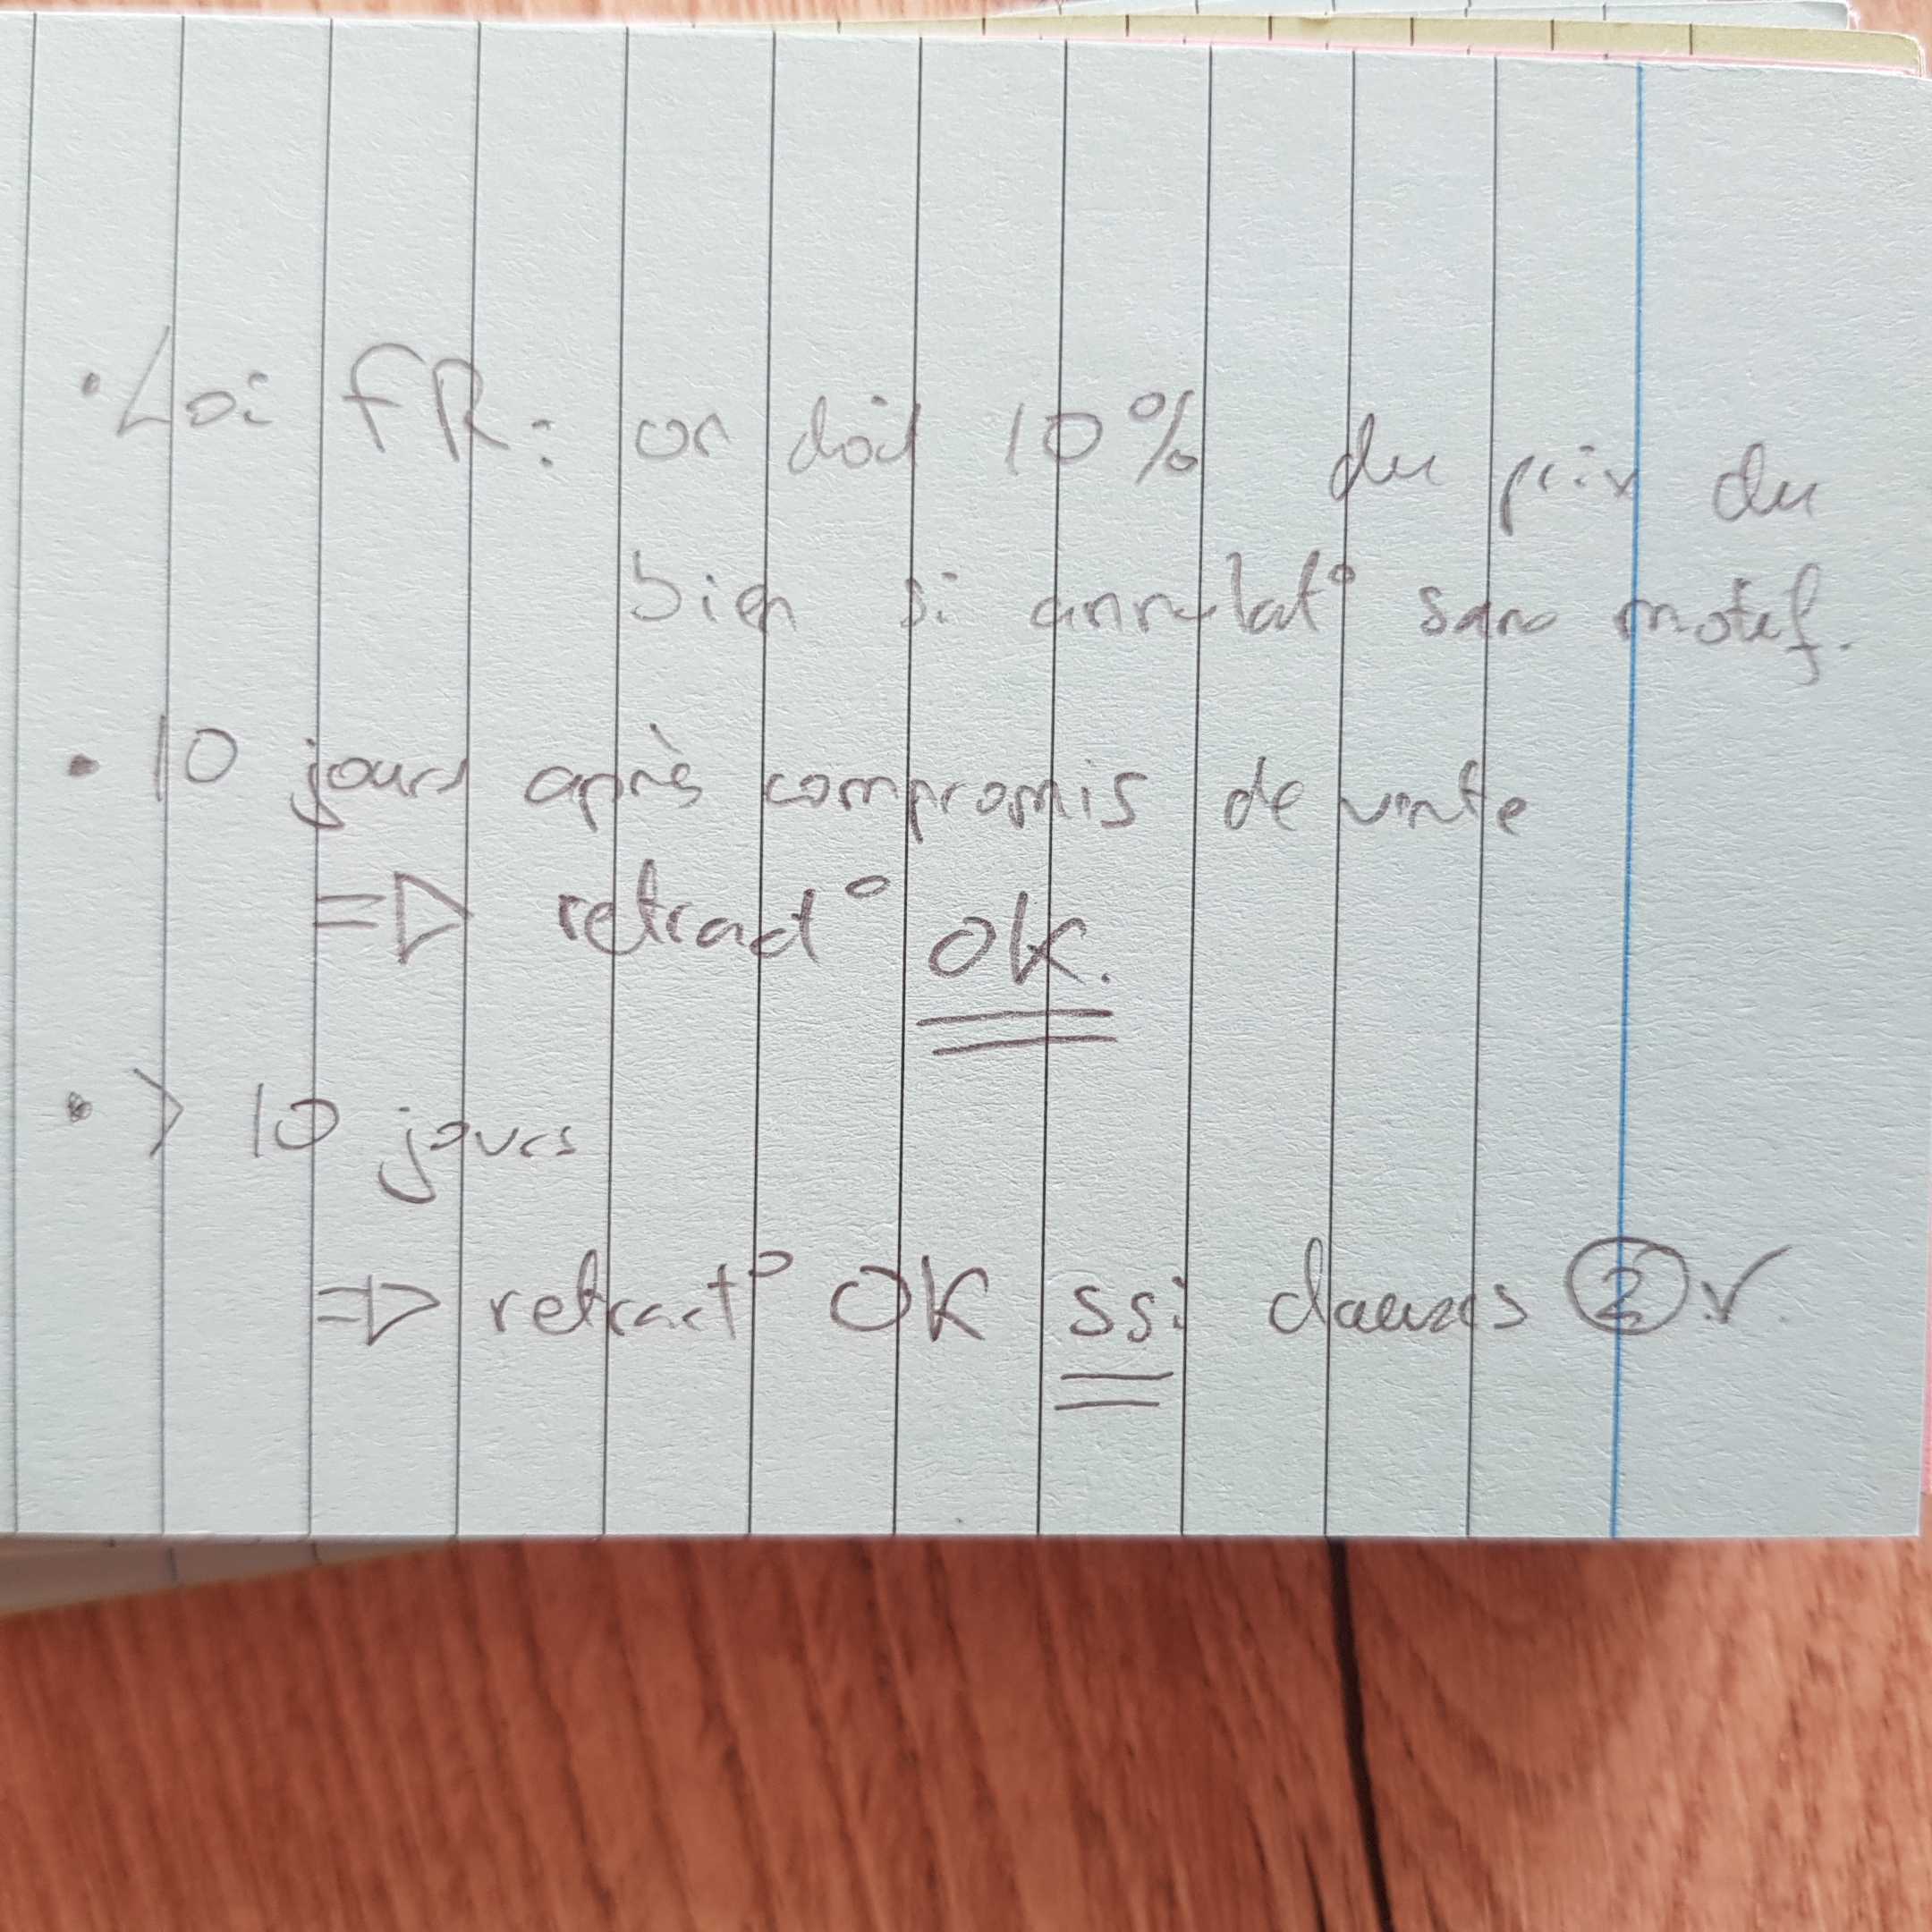 • Loi FR : on doit 10% du prix du
bien si annulat° sans motif.
• 10 jours après compromis de vente
=> retract° OK.
• > 10 jours
=> retract° OK ssi clauses ② ✓.